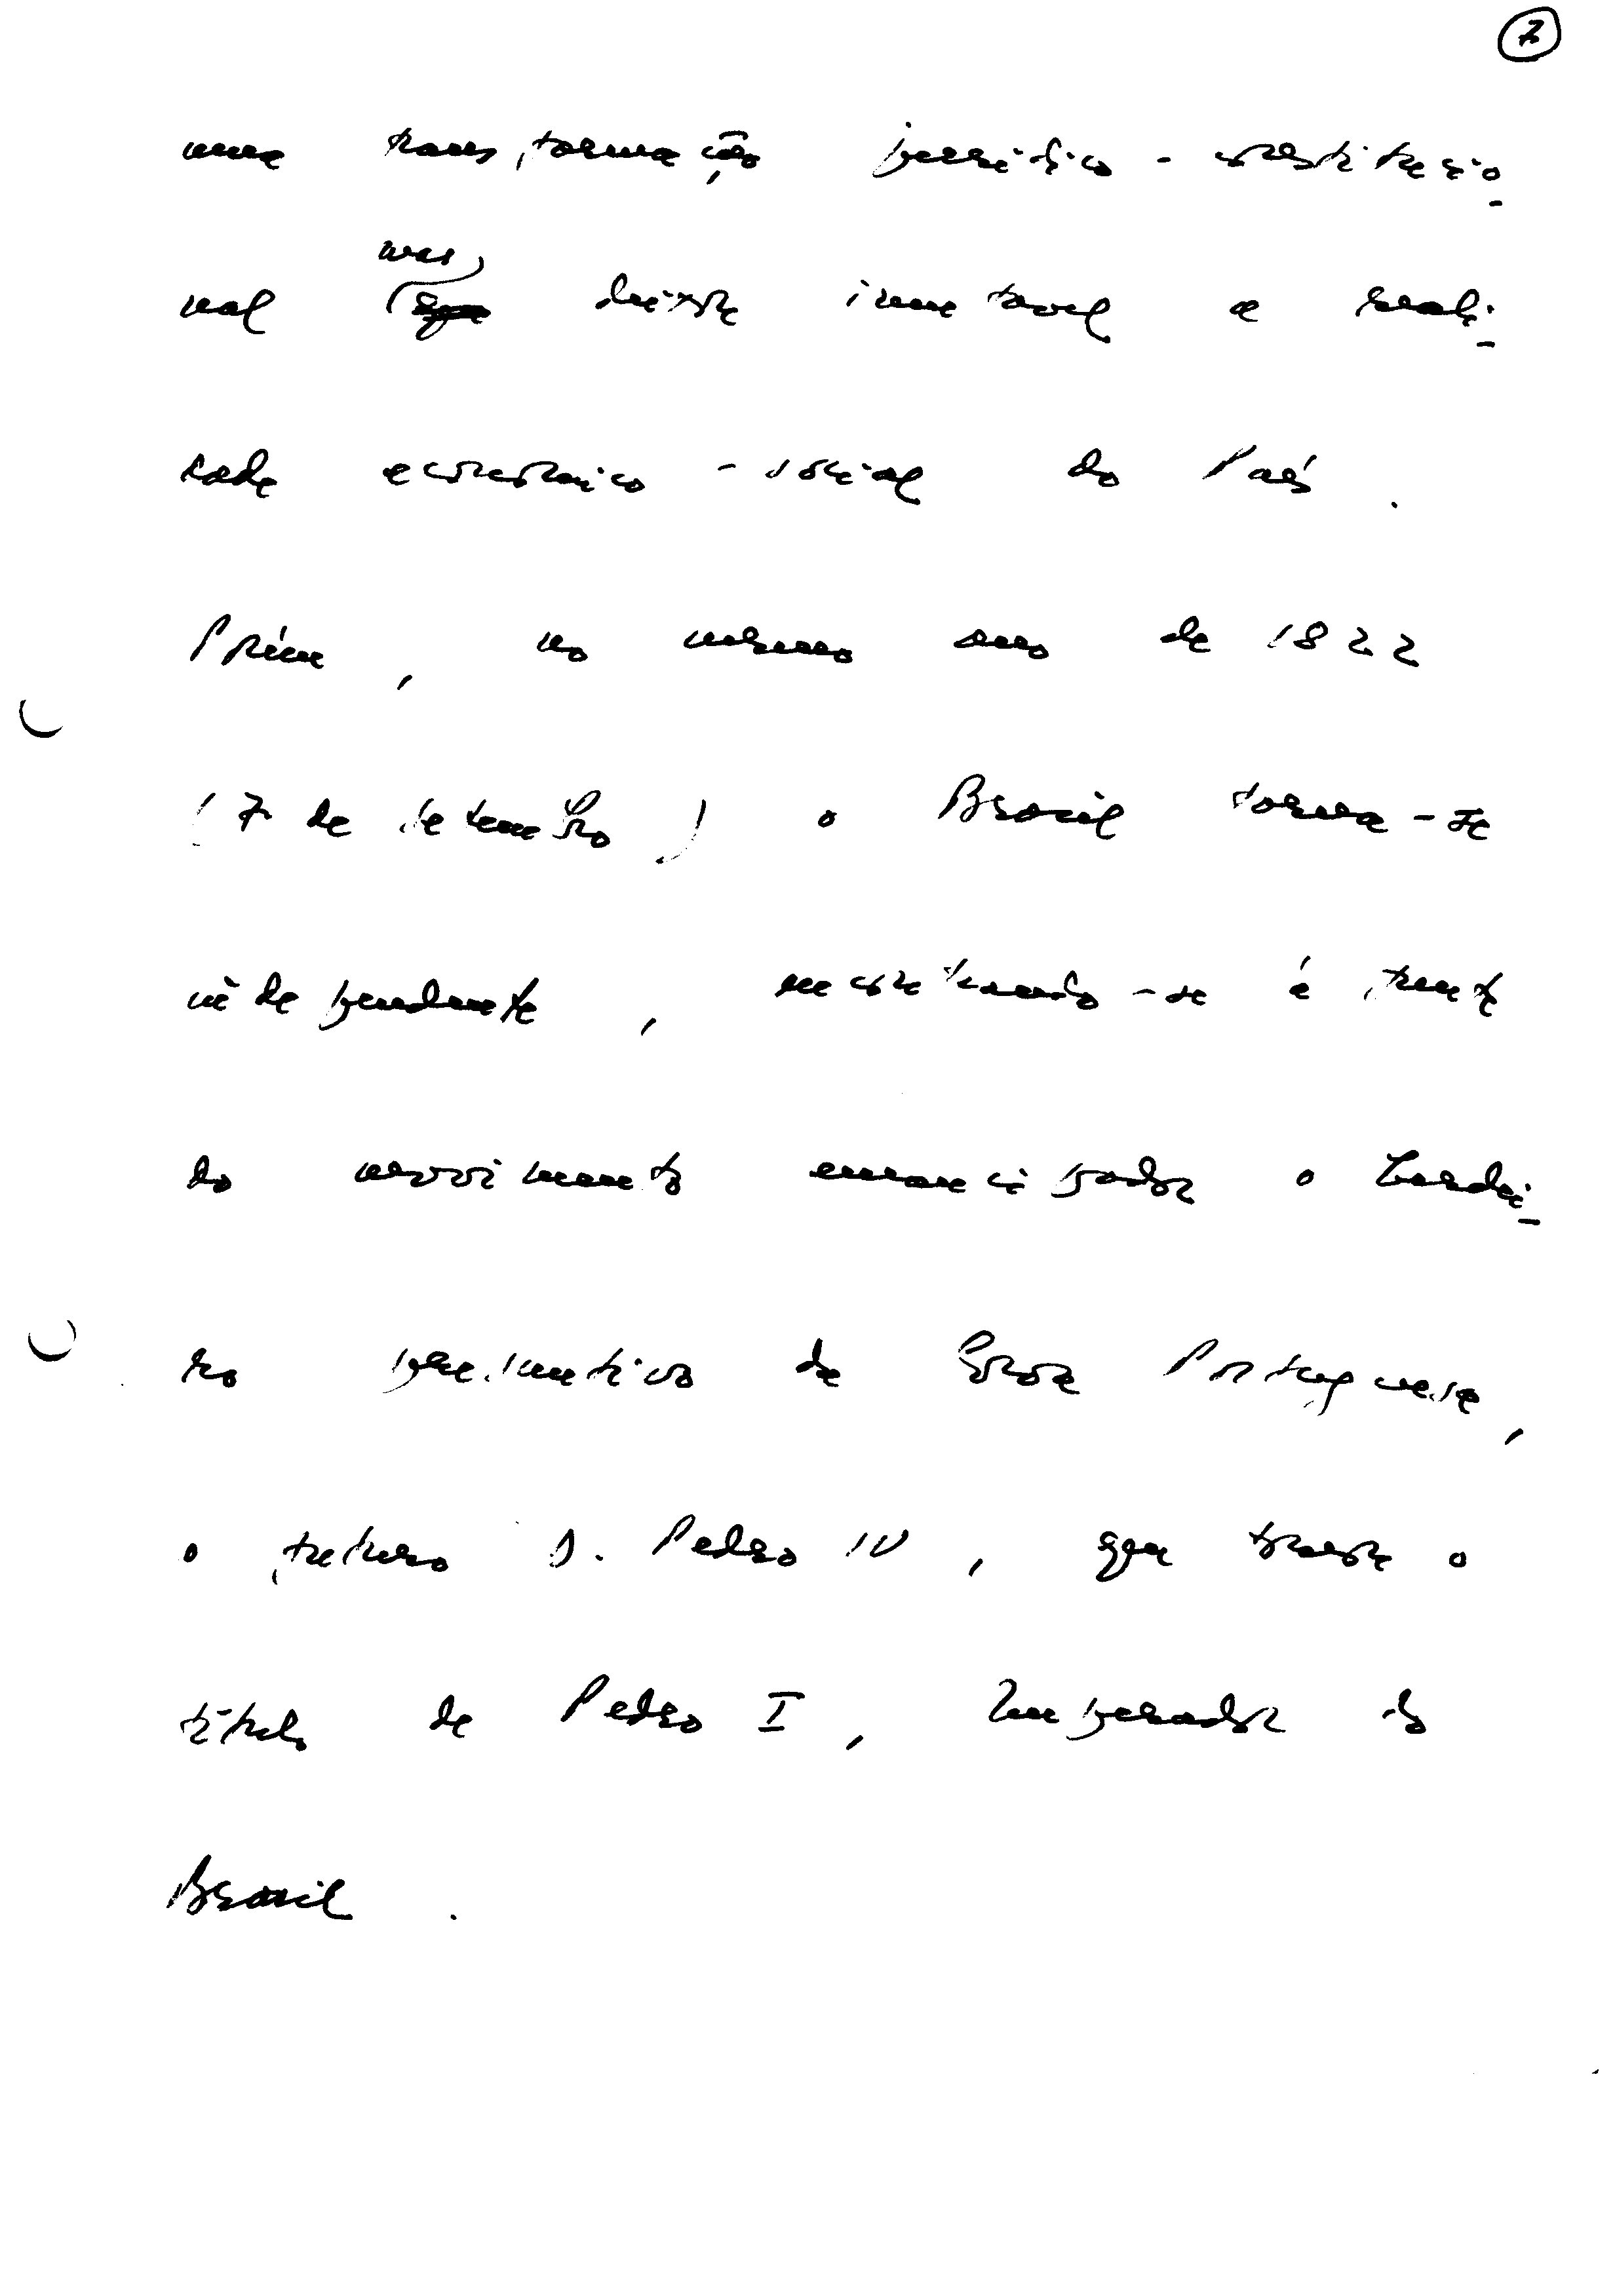 7
uma transformação jurídico-constitucio-
nal mas deixou imutável a reali-
dade económico-social do País.
Porém, no mesmo ano de 1822
(7 de Setembro) o Brasil torna-se
independente, encontrando-se à frente
do movimento emancipador o herdei-
ro presuntivo da Coroa Portuguesa,
o futuro D. Pedro IV, que toma o
título de Pedro I, Imperador do
Brasil.